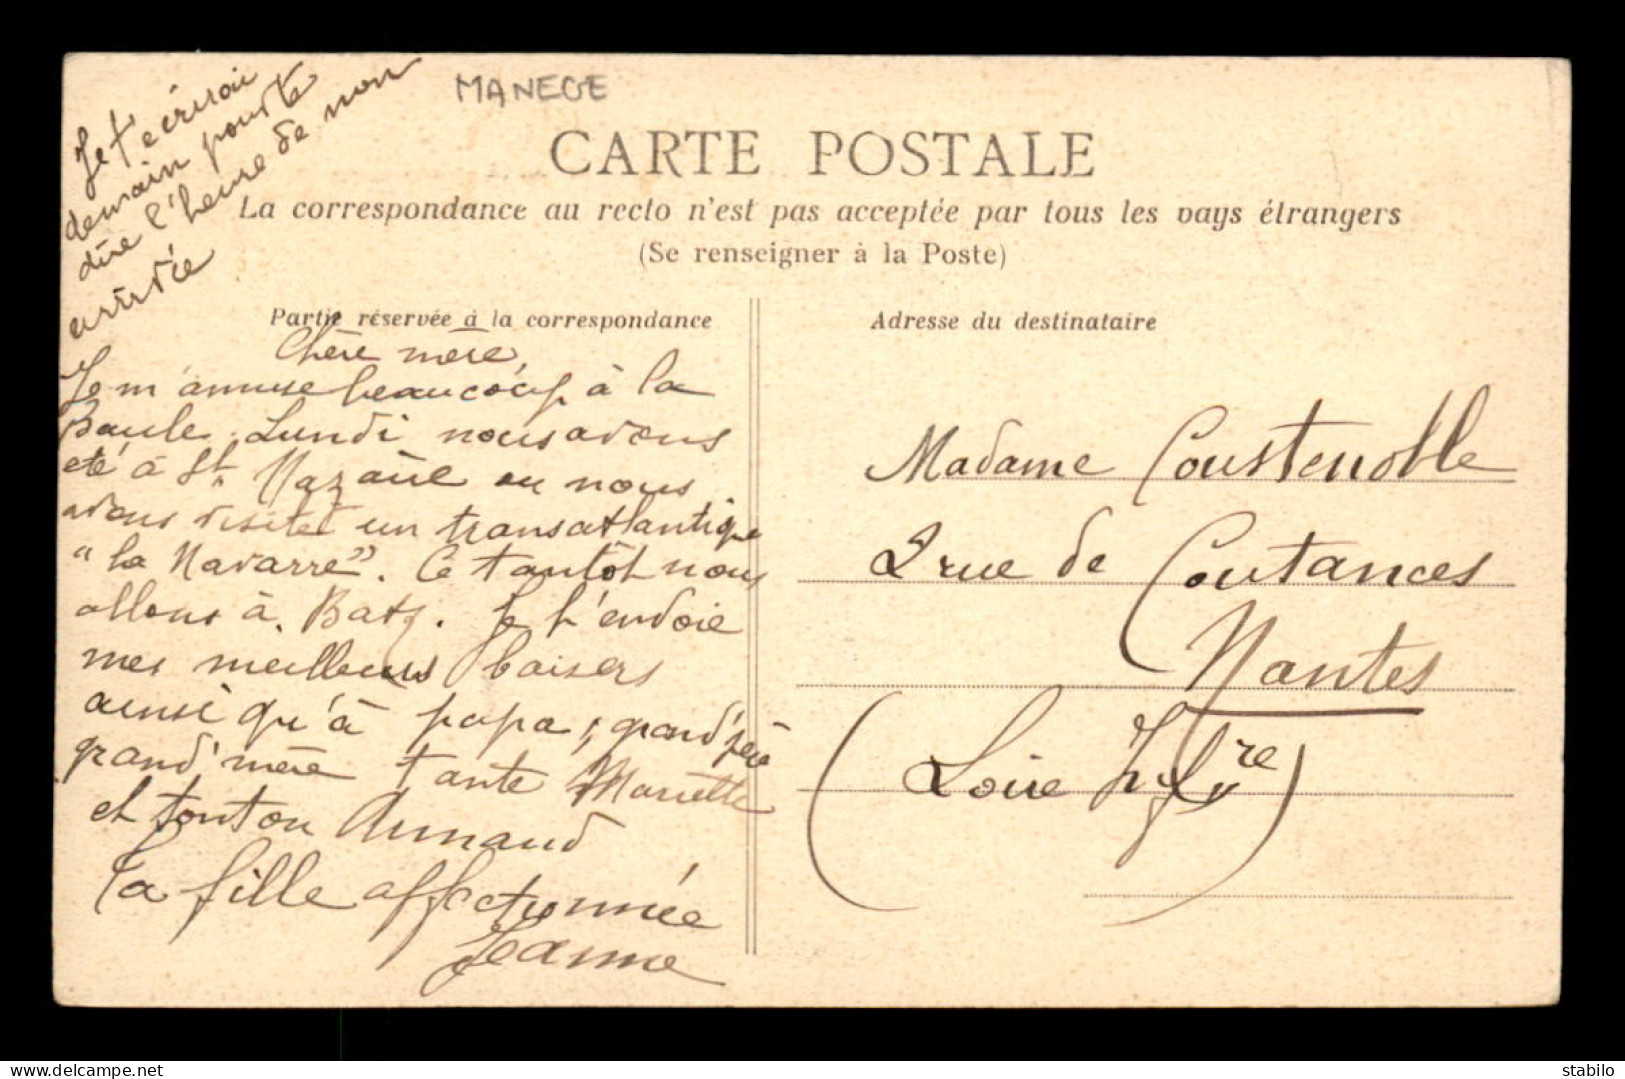 MANEGE
Je t'écrirai
demain pour te
dire l'heure de mon
arrivée
CARTE POSTALE
La correspondance au recto n'est pas acceptée par tous les pays étrangers
(Se renseigner à la Poste)
Partie réservée à la correspondance
Chère mère,
Je m'amuse beaucoup à la
Baule. Lundi nous avons
été à St Nazaire ou nous
avons visité un transatlantique
"la Navarre". Ce tantôt nous
allons à Batz. Je t'envoie
mes meilleurs baisers
ainsi qu'à papa, grand'père
grand'mère tante Mariette
et tonton Armand
Ta fille affectionnée
Jeanne
Adresse du destinataire
Madame Coustenoble
2 rue de Coutances
Nantes
(Loire Infre)
delcampe.net
stabilo